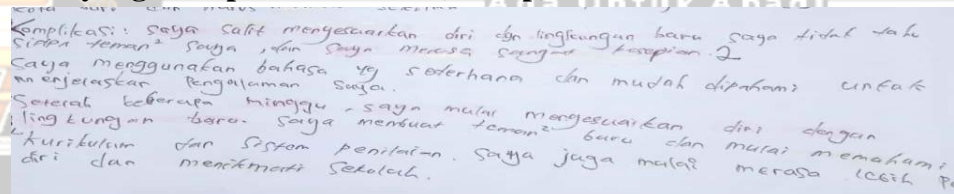 Komplikasi: saya salit mengesuaikan diri dgn lingkungan baru saya tidak tahu
teman² saya, dan saya merasa sangat kesepian. 2
saya menggunakan bahasa yg sederhana dan mudah dipahami untuk
menjelaskan Pengalaman saya.
Setelah beberapa minggu, saya mulai mengesuaikan diri dengan
lingkungan baru. saya membuat teman² baru dan mulai memahami
kurikulum dan sistem penilaian. saya juga mulai merasa lebih
diri dan menikmati sekolah.